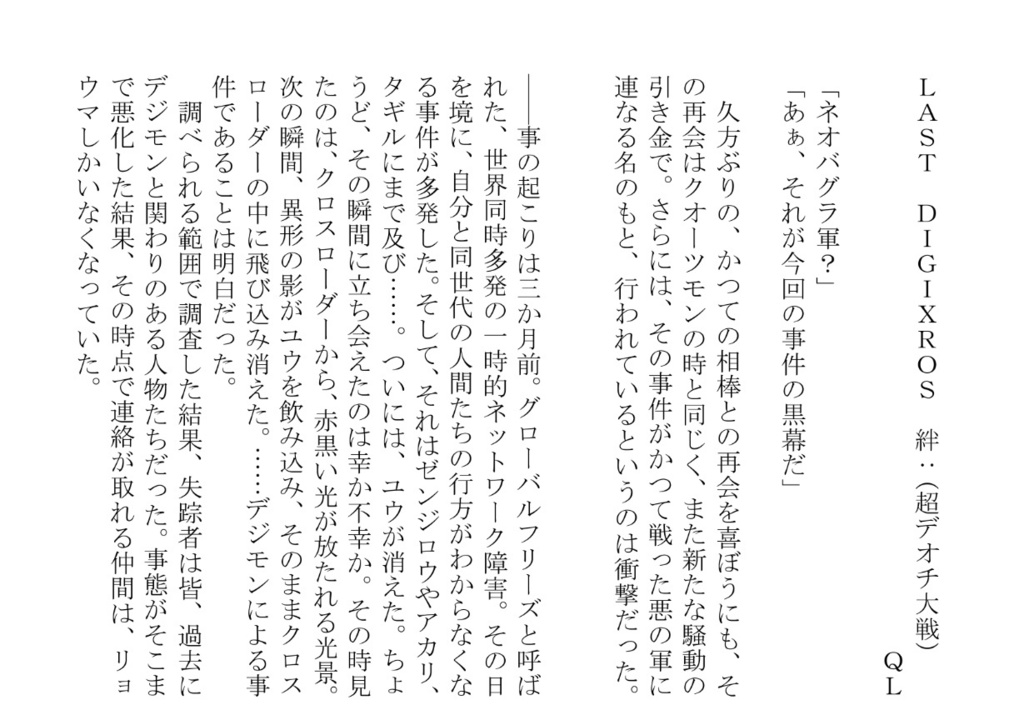 ＬＡＳＴ　ＤＩＧＩＸＲＯＳ　絆：（超デオチ大戦）
ＱＬ
「ネオバグラ軍？」
「あぁ、それが今回の事件の黒幕だ」
　久方ぶりの、かつての相棒との再会を喜ぼうにも、そ
の再会はクオーツモンの時と同じく、また新たな騒動の
引き金で。さらには、その事件がかつて戦った悪の軍に
連なる名のもと、行われているというのは衝撃だった。
――事の起こりは三か月前。グローバルフリーズと呼ば
れた、世界同時多発の一時的ネットワーク障害。その日
を境に、自分と同世代の人間たちの行方がわからなくな
る事件が多発した。そして、それはゼンジロウやアカリ、
タギルにまで及び……。ついには、ユウが消えた。ちょ
うど、その瞬間に立ち会えたのは幸か不幸か。その時見
たのは、クロスローダーから、赤黒い光が放たれる光景。
次の瞬間、異形の影がユウを飲み込み、そのままクロス
ローダーの中に飛び込み消えた。……デジモンによる事
件であることは明白だった。
　調べられる範囲で調査した結果、失踪者は皆、過去に
デジモンと関わりのある人物たちだった。事態がそこま
で悪化した結果、その時点で連絡が取れる仲間は、リョ
ウマしかいなくなっていた。